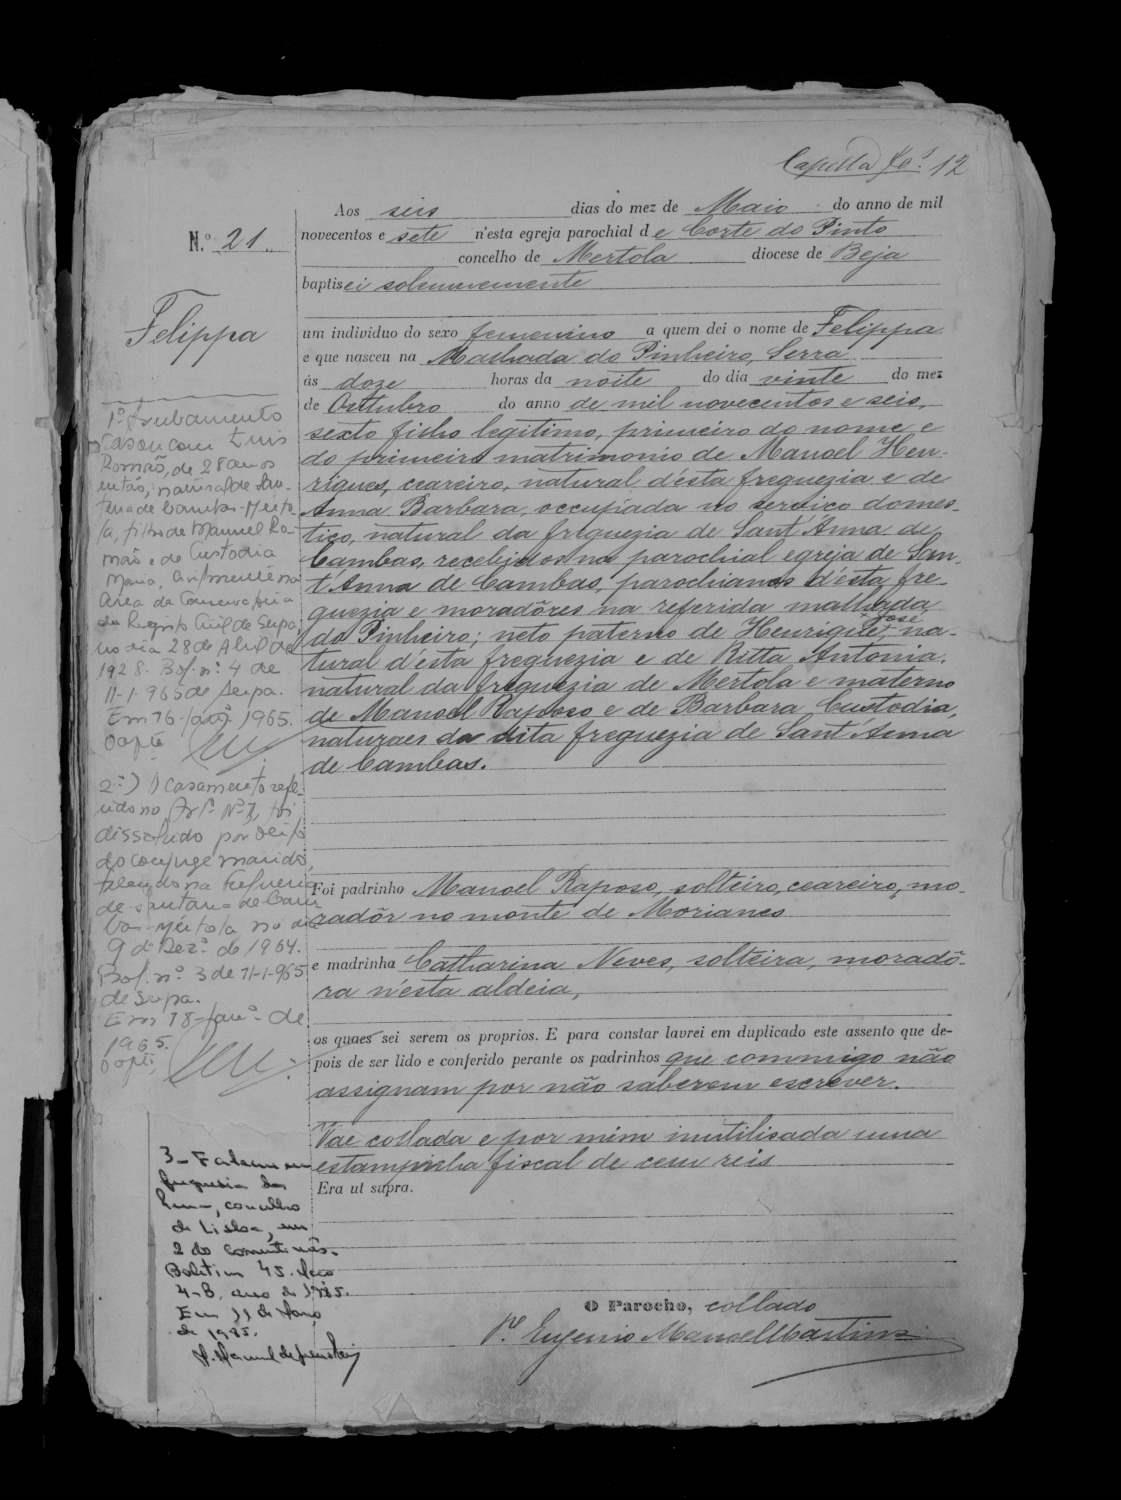 Capella fl. 12
N.º 21
Felippa
Aos seis dias do mez de Maio do anno de mil
novecentos e sete n'esta egreja parochial de Corte do Pinto
concelho de Mertola diocese de Beja
baptisei solemnemente
um individuo do sexo femenino a quem dei o nome de Felippa
e que nasceu na Malhada do Pinheiro, Serra
ás doze horas da noite do dia vinte do mez
de Outubro do anno de mil novecentos e seis,
sexto filho legitimo, primeiro do nome e
do primeiro matrimonio de Manoel Hen-
riques, ceareiro, natural d'ésta freguezia e de
Anna Barbara, occupada no serviço domes-
tico, natural da freguezia de Sant'Anna de
Cambas, recebidos na parochial egreja de San-
t'Anna de Cambas, parochianos d'ésta fre-
guezia e moradôres na referida malhada
do Pinheiro; neto paterno de Henrique José, na-
tural d'ésta freguezia e de Ritta Antonia,
natural da freguezia de Mertola e materno
de Manoel Raposo e de Barbara Custodia,
naturaes da dita freguezia de Sant'Anna
de Cambas.
Foi padrinho Manoel Raposo, solteiro, ceareiro, mo-
radôr no monte de Morianes
e madrinha Catharina Neves, solteira, moradô-
ra n'ésta aldeia,
os quaes sei serem os proprios. E para constar lavrei em duplicado este assento que de-
pois de ser lido e conferido perante os padrinhos que commigo não
assignam por não saberem escrever.
Vae collada e por mim inutilisada uma
estampilha fiscal de cem reis
Era ut supra.
O Parocho, collado
Pe. Eugenio Manoel Martins
1.º Averbamento
Casou com
Romão, de 28 anos
então, natural de San-
tana de Cambas-Merto-
la, filho de Manuel Ro-
mão e de Custodia
Maria, civilmente na
área da Conservatória
do Registo Civil de Serpa,
no dia 28 de Abril de
1928. Bol. n.º 4 de
11-1-965 de Serpa.
Em 16 1965.
2.º) O casamento refe-
rido no N.º 1, foi
dissolvido por óbito
do conjuge marido,
na freguesia
de Santana de Cam
bas-Mértola no dia
9 de Dez.º de 1964.
Bol. n.º 3 de 11-1-965
de Serpa.
Em 18 Jan.º de
1965.
3 - Faleceu
freguesia
concelho
de Lisboa, em
2 do corrente mês.
Boletim 45.
de 1985.
Em 11 de
de 1985.